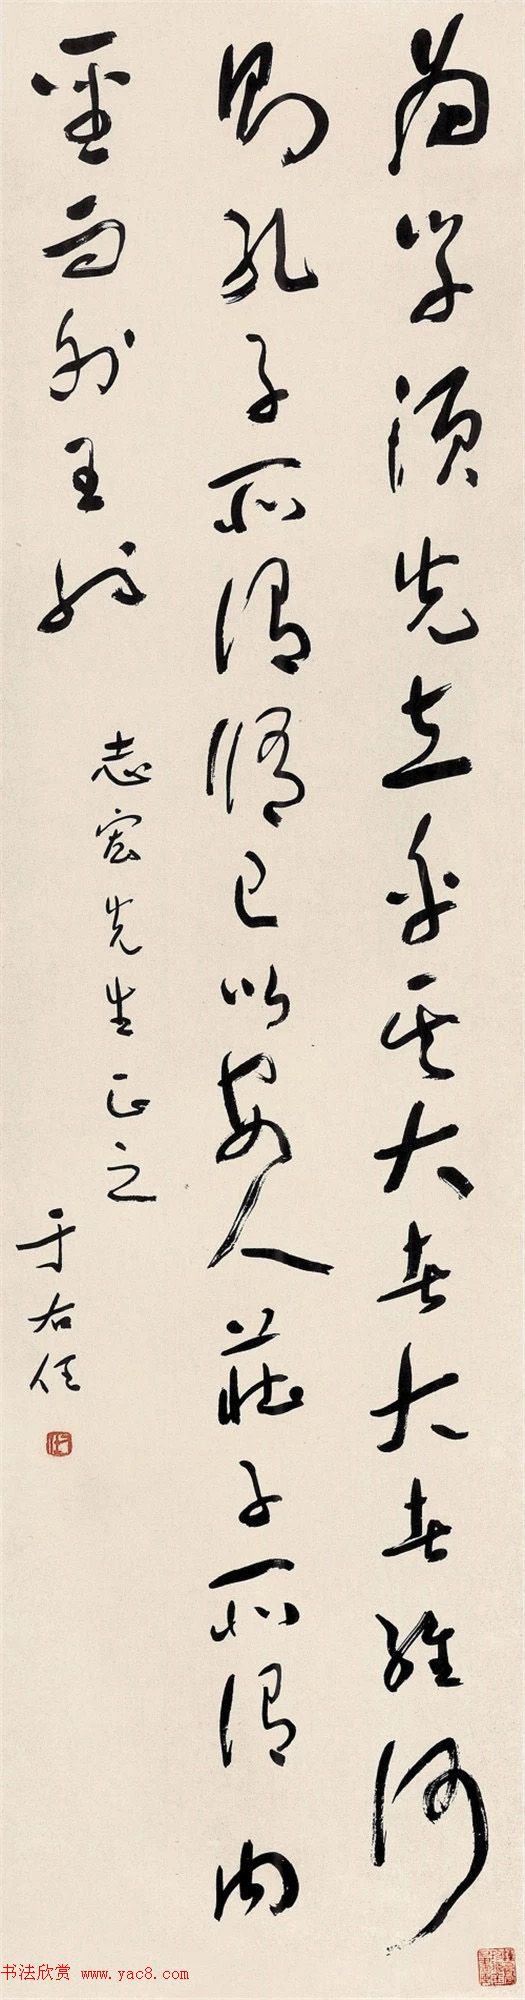 為學須先立乎其大者大者維何
則孔子所謂脩己以安人莊子所謂內
聖而外王於
志宏先生正之
于右任
书法欣赏 www.yac8.com